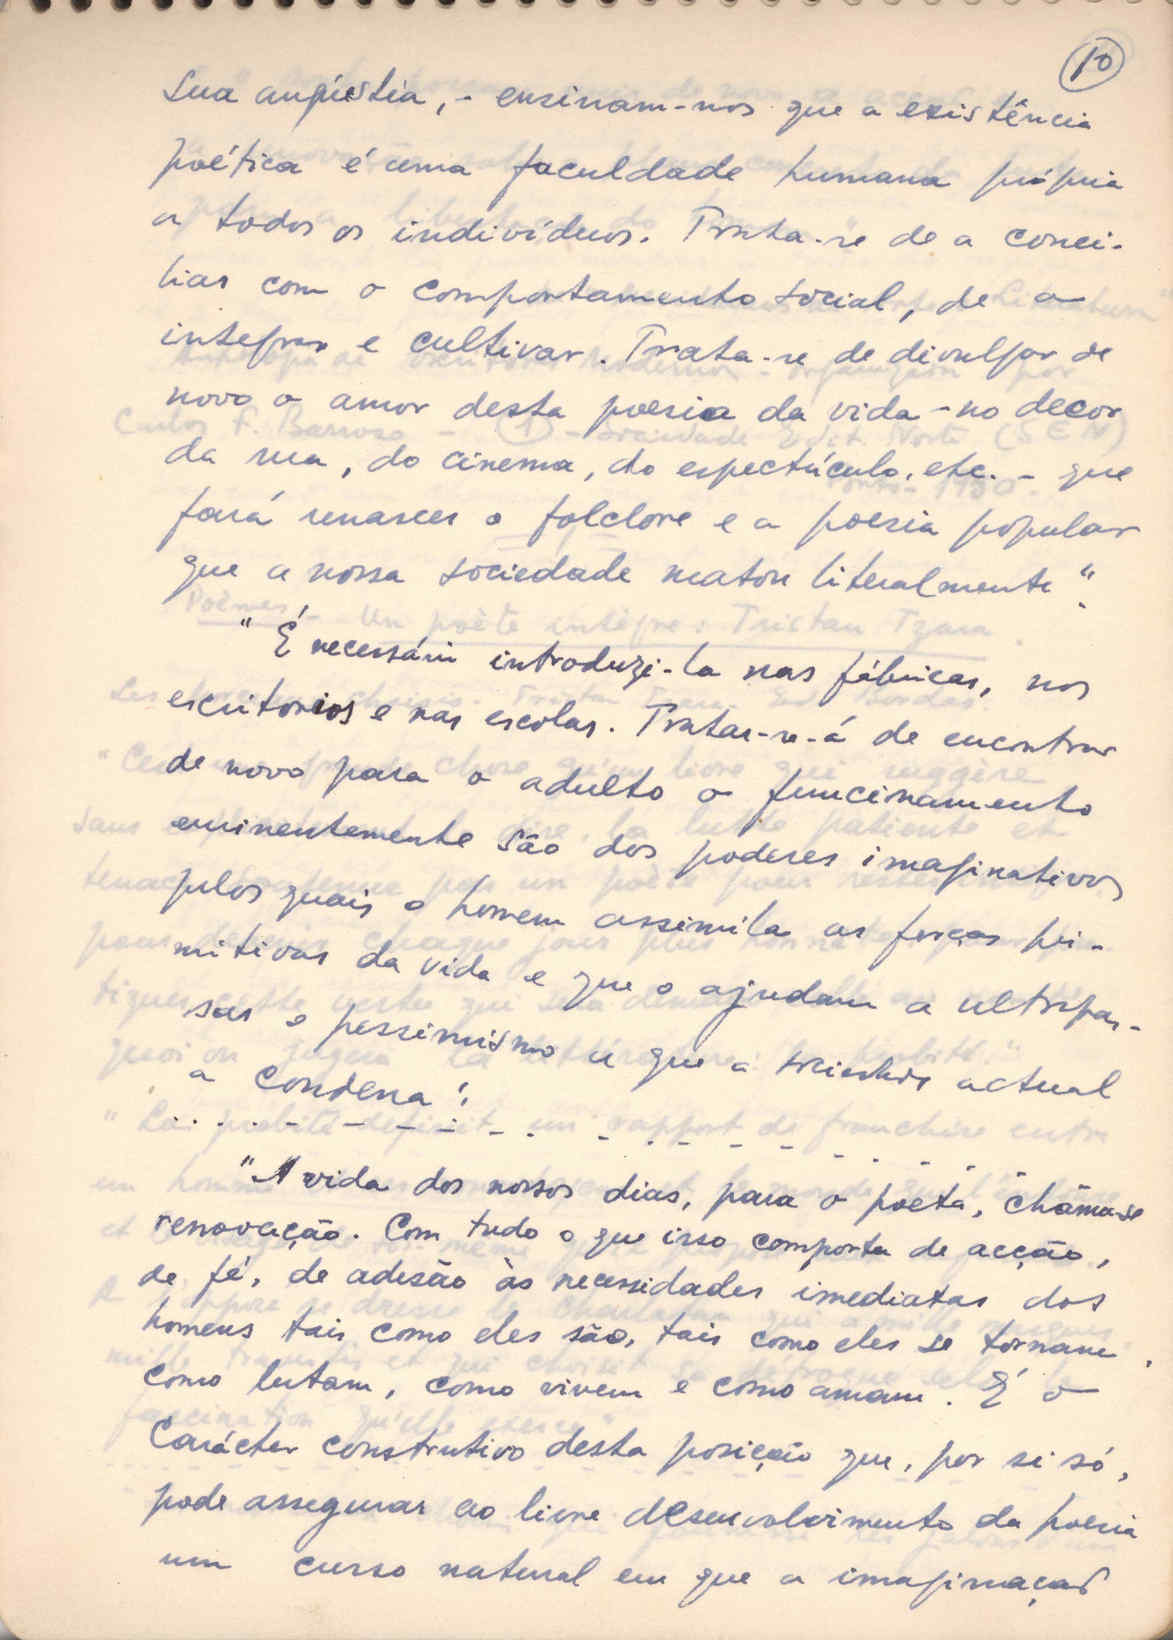 10
sua angústia, - ensinam-nos que a existência
poética é uma faculdade humana própria
a todos os indivíduos. Trata-se de a conci-
liar com o comportamento social, de a
integrar e cultivar. Trata-se de divulgar de
novo o amor desta poesia da vida - no decor
da rua, do cinema, do espectáculo, etc. - que
fará renascer o folclore e a poesia popular
que a nossa sociedade matou literalmente".
"É necessário introduzi-la nas fábricas, nos
escritorios e nas escolas. Tratar-se-á de encontrar
de novo para o adulto o funcionamento
eminentemente são dos poderes imaginativos
pelos quais o homem assimila as forças pri-
mitivas da vida e que o ajudam a ultrapas-
sar o pessimismo a que a sociedade actual
a condena".
"A vida dos nossos dias, para o poeta, chama-se
renovação. Com tudo o que isso comporta de acção,
de fé, de adesão às necessidades imediatas dos
homens tais como eles são, tais como eles se tornam,
como lutam, como vivem e como amam. É o
carácter construtivo desta posição que, por si só,
pode assegurar ao livre desenvolvimento da poesia
um curso natural em que a imaginação